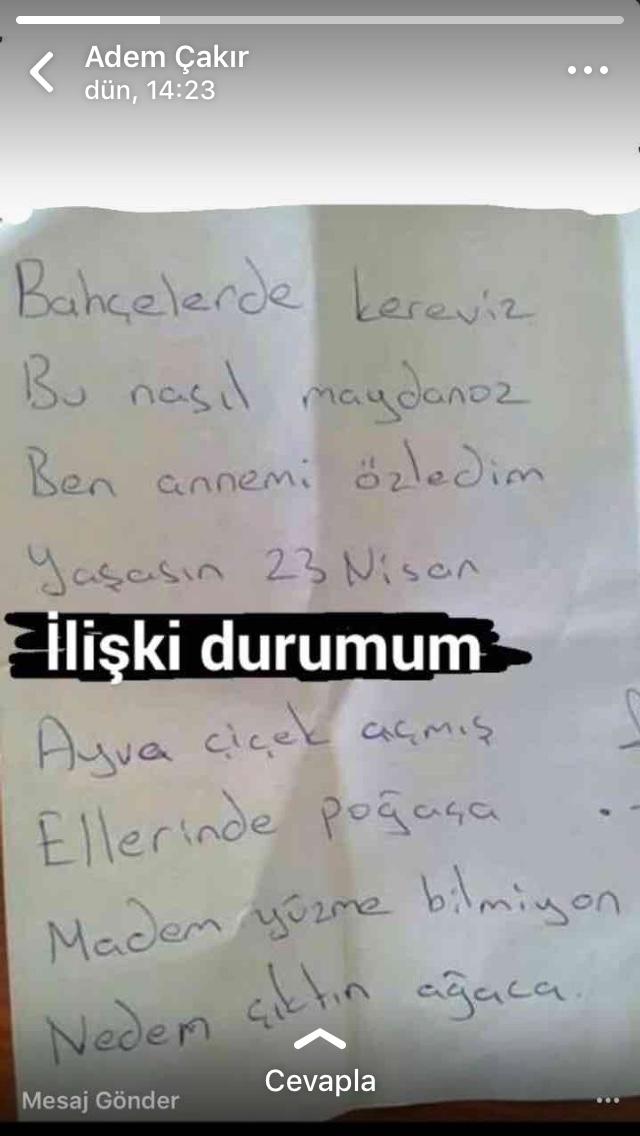 Adem Çakır
dün, 14:23
Bahçelerde kereviz
Bu nasıl maydanoz
Ben annemi özledim
Yaşasın 23 Nisan
İlişki durumum
Ayva çiçek açmış
Ellerinde poğaça
Madem yüzme bilmiyon
Nedem çıktın ağaca.
Cevapla
Mesaj Gönder